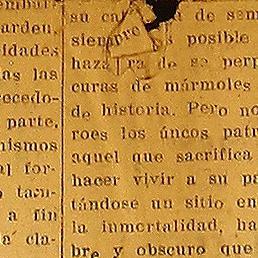 embar
ardeu,
idades
as las
recedo-
parte,
nismos
al for-
o tacu-
a fin
a cla-
su de sem
siempre posible
haza ra de se perp
curas de mármoles
de historia. Pero no
roes los úncos patr
aquel que sacrifica
hacer vivir a su pa
tándose un sitio en
la inmortalidad, ha
bre y obscuro que